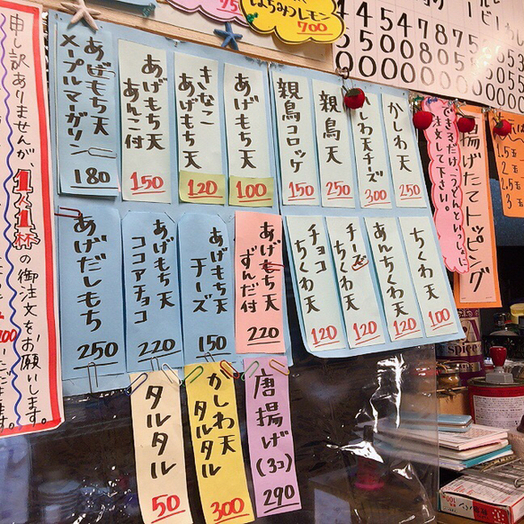 申し訳ありませんが、
1人1杯の御注文をお願いします。
はちみつレモン
700
揚げたてトッピング
できるだけ、うどんといっしょに
注文して下さい。
かしわ天
250
かしわ天チーズ
300
親鳥天
250
親鳥コロッケ
150
あげもち天
100
きなこ
あげもち天
120
あげもち天
あんこ付
150
あげもち天
メープルマーガリン
180
ちくわ天
100
あんちくわ天
120
チーズ
ちくわ天
120
チョコ
ちくわ天
120
あげもち天
ずんだ付
220
あげもち天
チーズ
150
あげもち天
ココアチョコ
220
あげだしもち
250
唐揚げ(3コ)
290
かしわ天
タルタル
300
タルタル
50
1.5玉
2玉
3玉
Spice